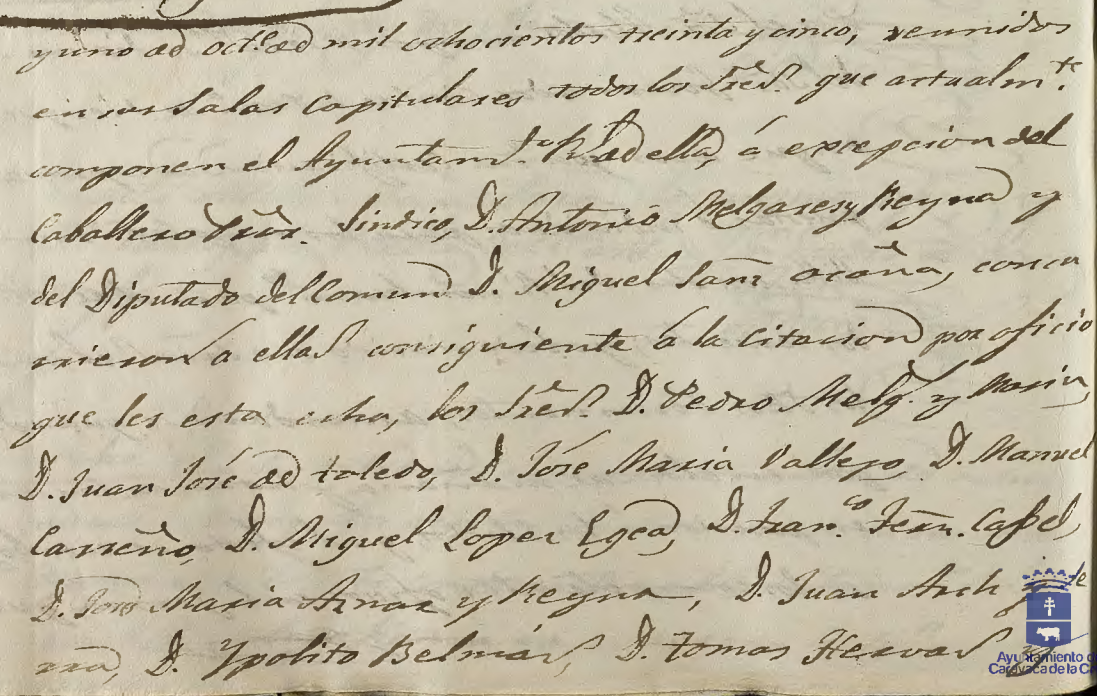 y uno de oct.e de mil ochocientos treinta y cinco, reunidos
en sus Salas Capitulares todos los Sres. que actualm.te
componen el Ayuntam.to R.l de ella, á excepcion del
Caballero Prõr. Sindico, D. Antonio Melgares y Reyna y
del Diputado del Comun D. Miguel Sanz Ocaña, concu
rrieron a ellas consiguiente á la citacion por oficio
que les esta echa, los Sres. D. Pedro Melg.s y Marin,
D. Juan José de toledo, D. José Maria Vallejo, D. Manuel
Carreño, D. Miguel Lopez Egea, D. Fran.co Fern. Capel,
D. José Maria Aznar y Reyna, D. Juan
D. Ypolito Belmár, D. tomas Hervas y
Ayuntamiento d
Caravaca de la C